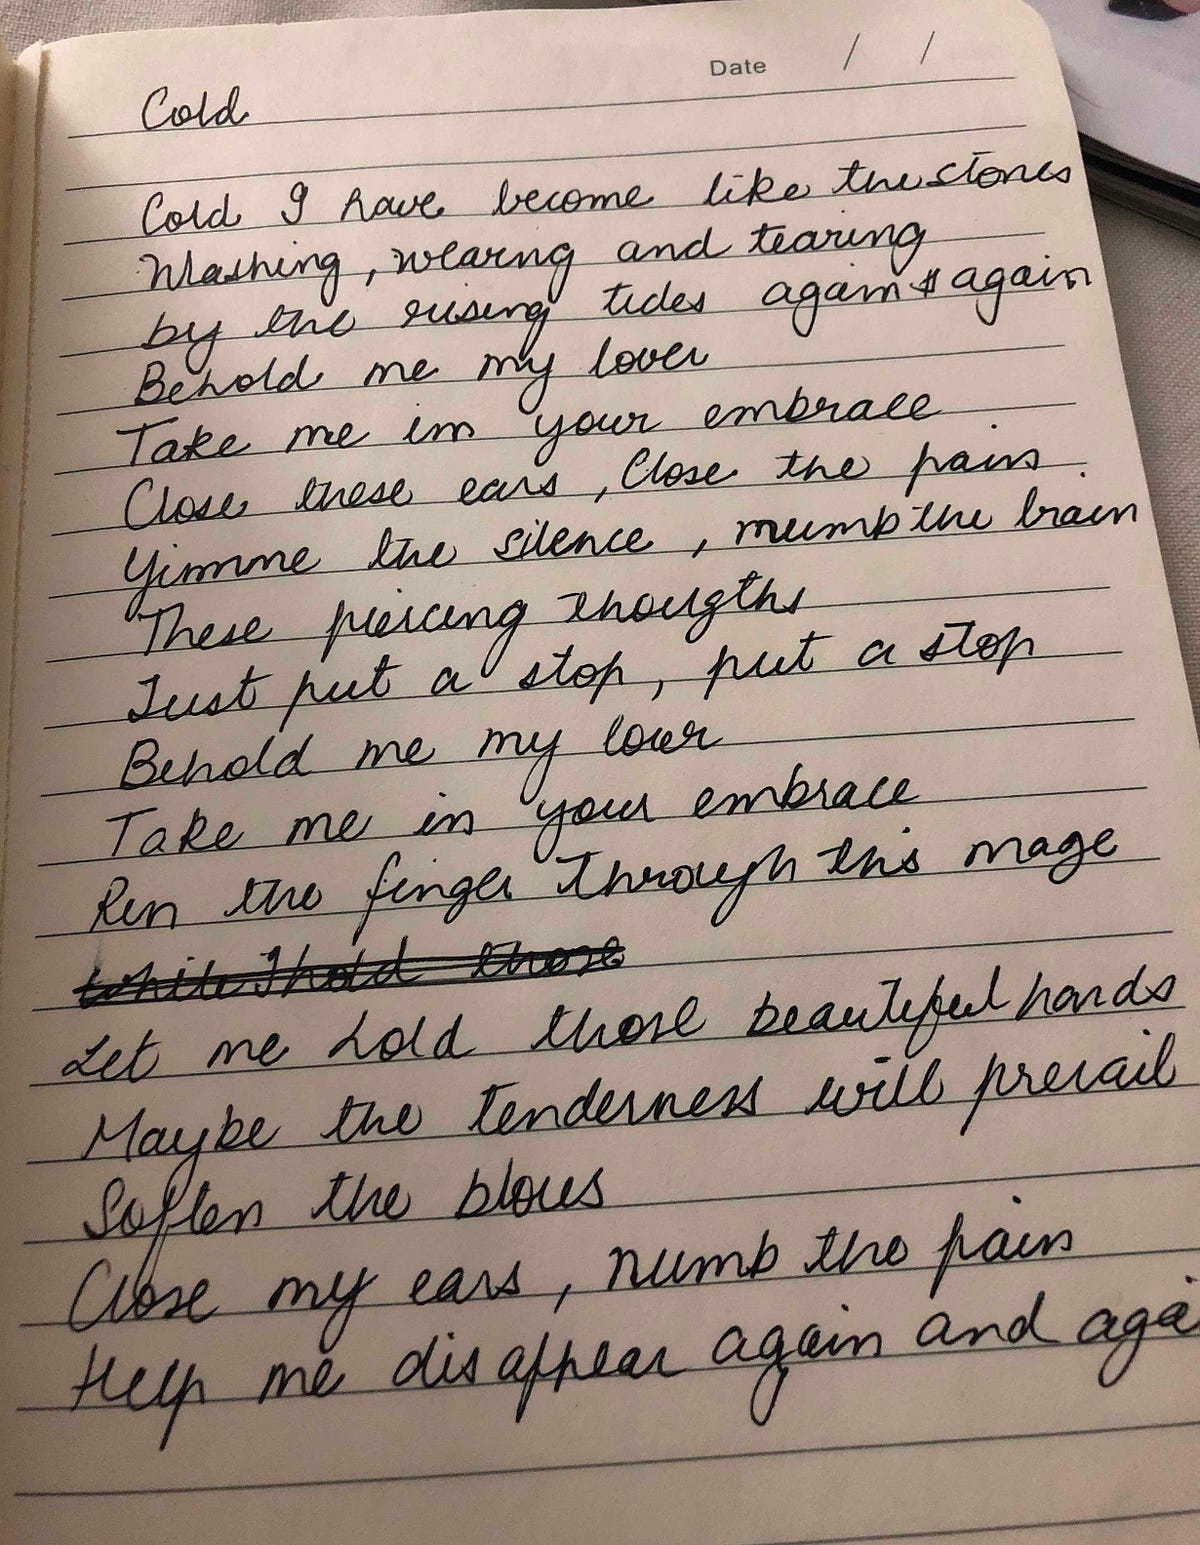 Date / /
Cold
Cold I have become like the stones
Washing, wearng and tearing
by the rising tides again & again
Behold me my lover
Take me in your embrace
Close these ears, Close the pain.
Gimme the silence, numb the brain
These piercing thougths
Just put a stop, put a stop
Behold me my lover
Take me in your embrace
Run the finger through this mage
While I hold those
Let me hold those beautiful hands
Maybe the tenderness will prevail
Soften the blows
Close my ears, numb the pain
Help me disappear again and aga